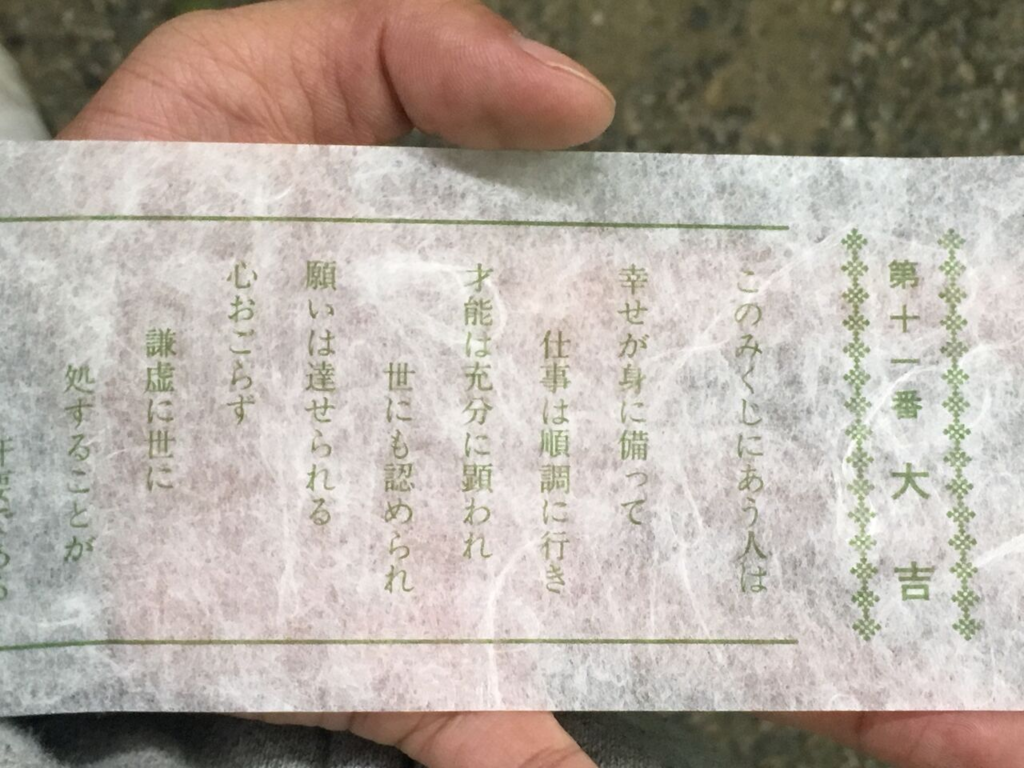 第十一番 大吉
このみくじにあう人は
幸せが身に備って
仕事は順調に行き
才能は充分に顕われ
世にも認められ
願いは達せられる
心おごらず
謙虚に世に
処することが